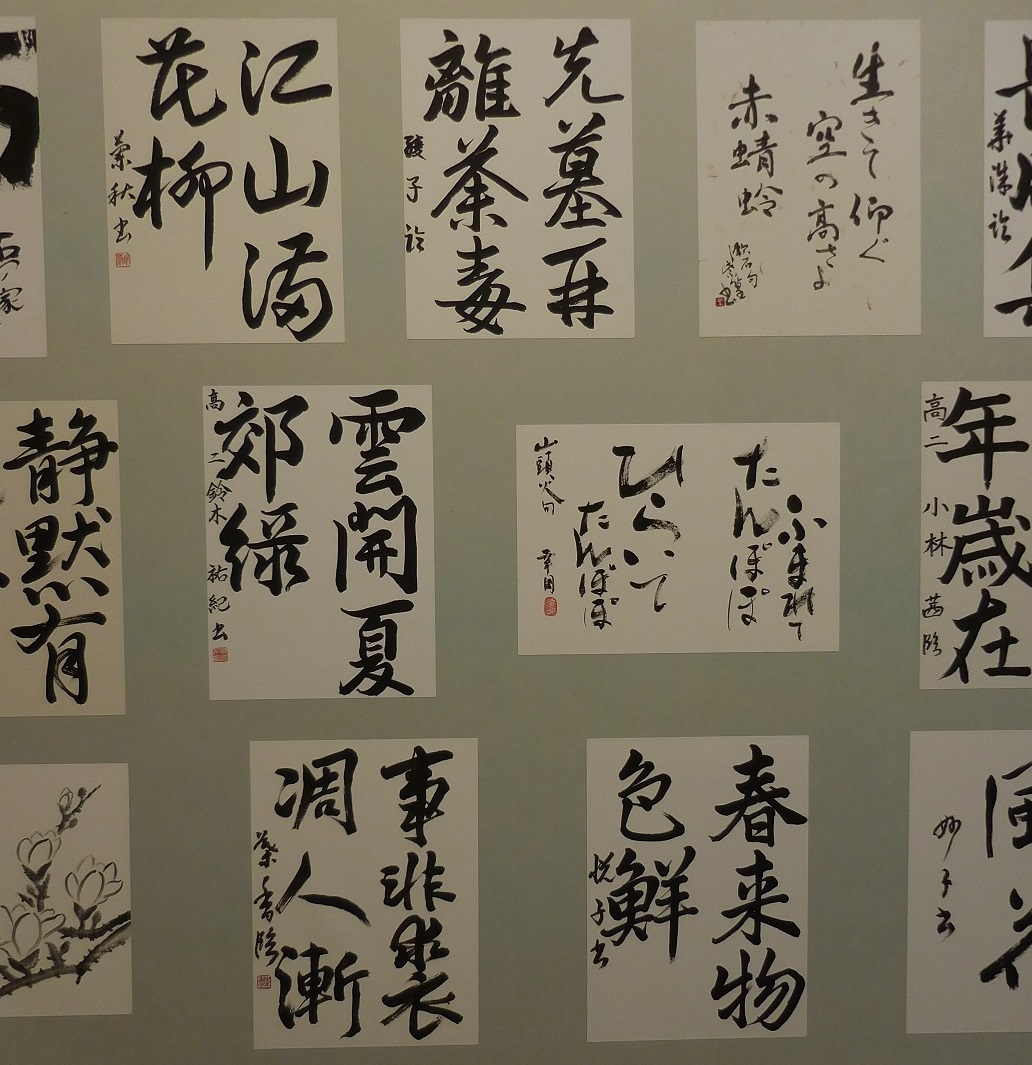 江山満
花柳
蘭秋書
先墓再
離荼毒
綾子臨
生きて仰ぐ
空の高さよ
赤蜻蛉
漱石句
静黙有
雲開夏
郊緑
高二 鈴木祐紀書
ふまれて
たんぽぽ
ひらいて
たんぽぽ
山頭火句
年歳在
高二 小林茜臨
事非裘
凋人漸
葉香臨
春来物
色鮮
悦子書
妙子書